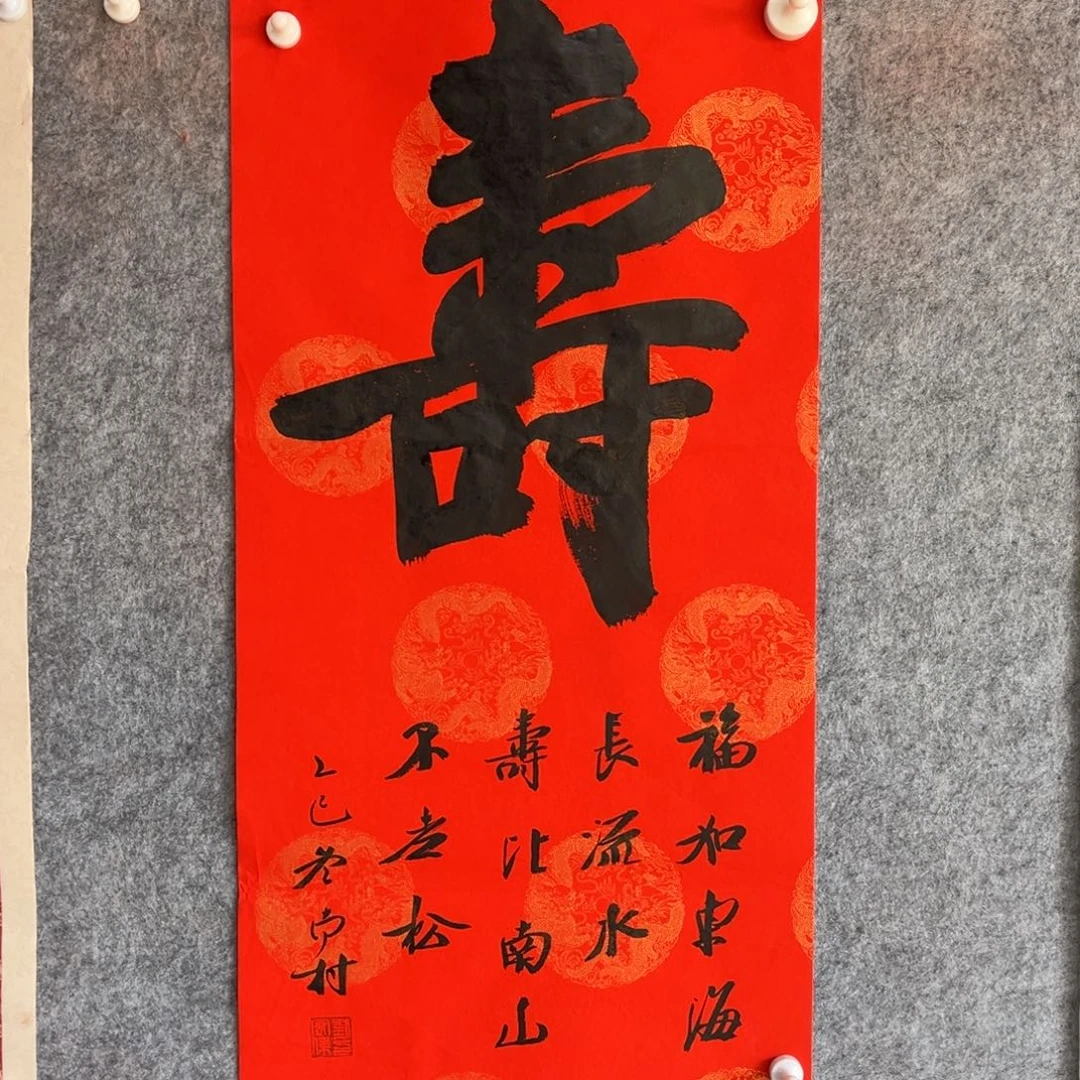 壽
福如東海
長流水
壽比南山
不老松
乙巳冬
村